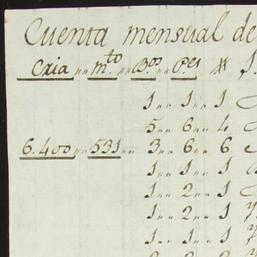 Cuenta mensual de
Cxia,, mto,, Bos,, Pes
1,, 1,, 1
5,, 6,, 4
6.400,, 531,, 3,, 6,, 6
1,, 1,, 1
1,, 2,, 1
1,, 2,, 1
1,, 1,, 1